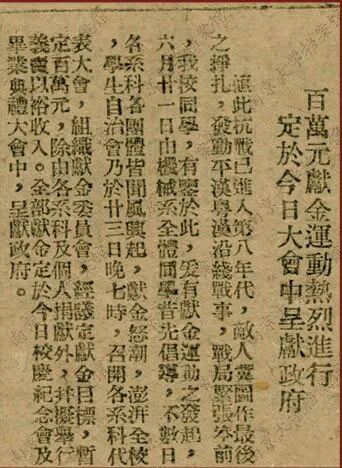 百萬元獻金運動熱烈進行
定於今日大會中呈獻政府
値此抗戰已進入第八年代,敵人妄圖作最後
之掙扎,發動平漢粤漢沿綫戰事,戰局緊張空前
,我校同學,有鑒於此,爰有獻金運動之發起,
六月廿一日由機械系全體同學首先倡導,不數日
各系科各團體皆聞風興起,獻金怒潮,澎湃全校
,學生自治會乃於廿三日晚七時,召開各系科代
表大會,組織獻金委員會,經議定獻金目標,暫
定百萬元,除由各系科及個人捐獻外,幷擬舉行
義賣以裕收入。全部獻金定於今日校慶紀念會及
畢業典禮大會中,呈獻政府。